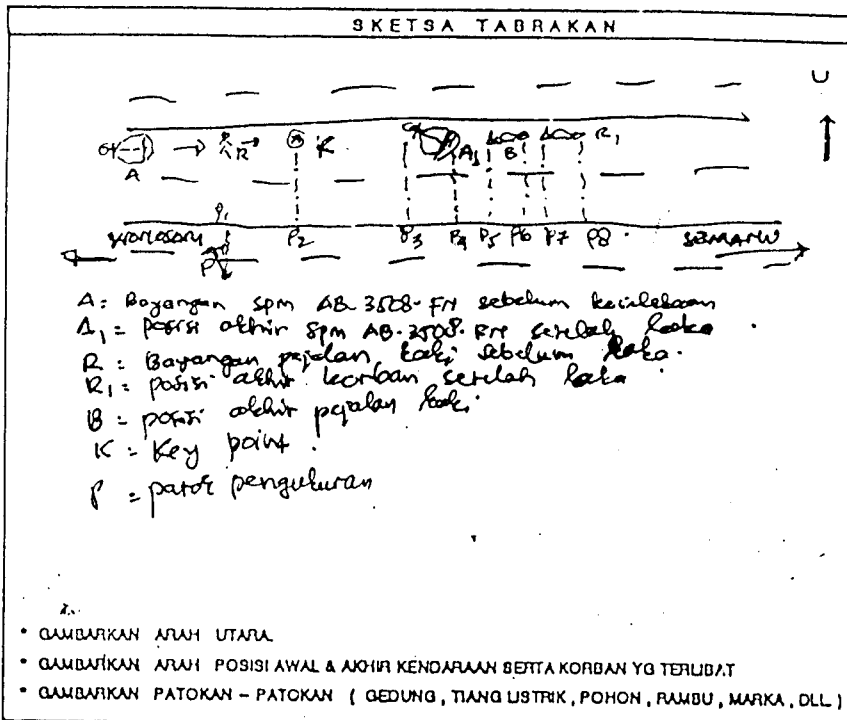 SKETSA TABRAKAN
U
A R K A1 B R1
P1 P2 P3 P4 P5 P6 P7 P8
WONOSARI SEMANU
P
A : Bayangan spm AB-3508-FN sebelum kecelakaan
A1 = posisi akhir spm AB-3508-FN setelah laka
R = Bayangan pejalan kaki sebelum laka.
R1 = posisi akhir korban setelah laka
B = posisi akhir pejalan kaki
K = Key point.
P = patok pengukuran
* GAMBARKAN ARAH UTARA.
* GAMBARKAN ARAH POSISI AWAL & AKHIR KENDARAAN SERTA KORBAN YG TERLIBAT
* GAMBARKAN PATOKAN - PATOKAN ( GEDUNG, TIANG LISTRIK, POHON, RAMBU, MARKA, DLL )